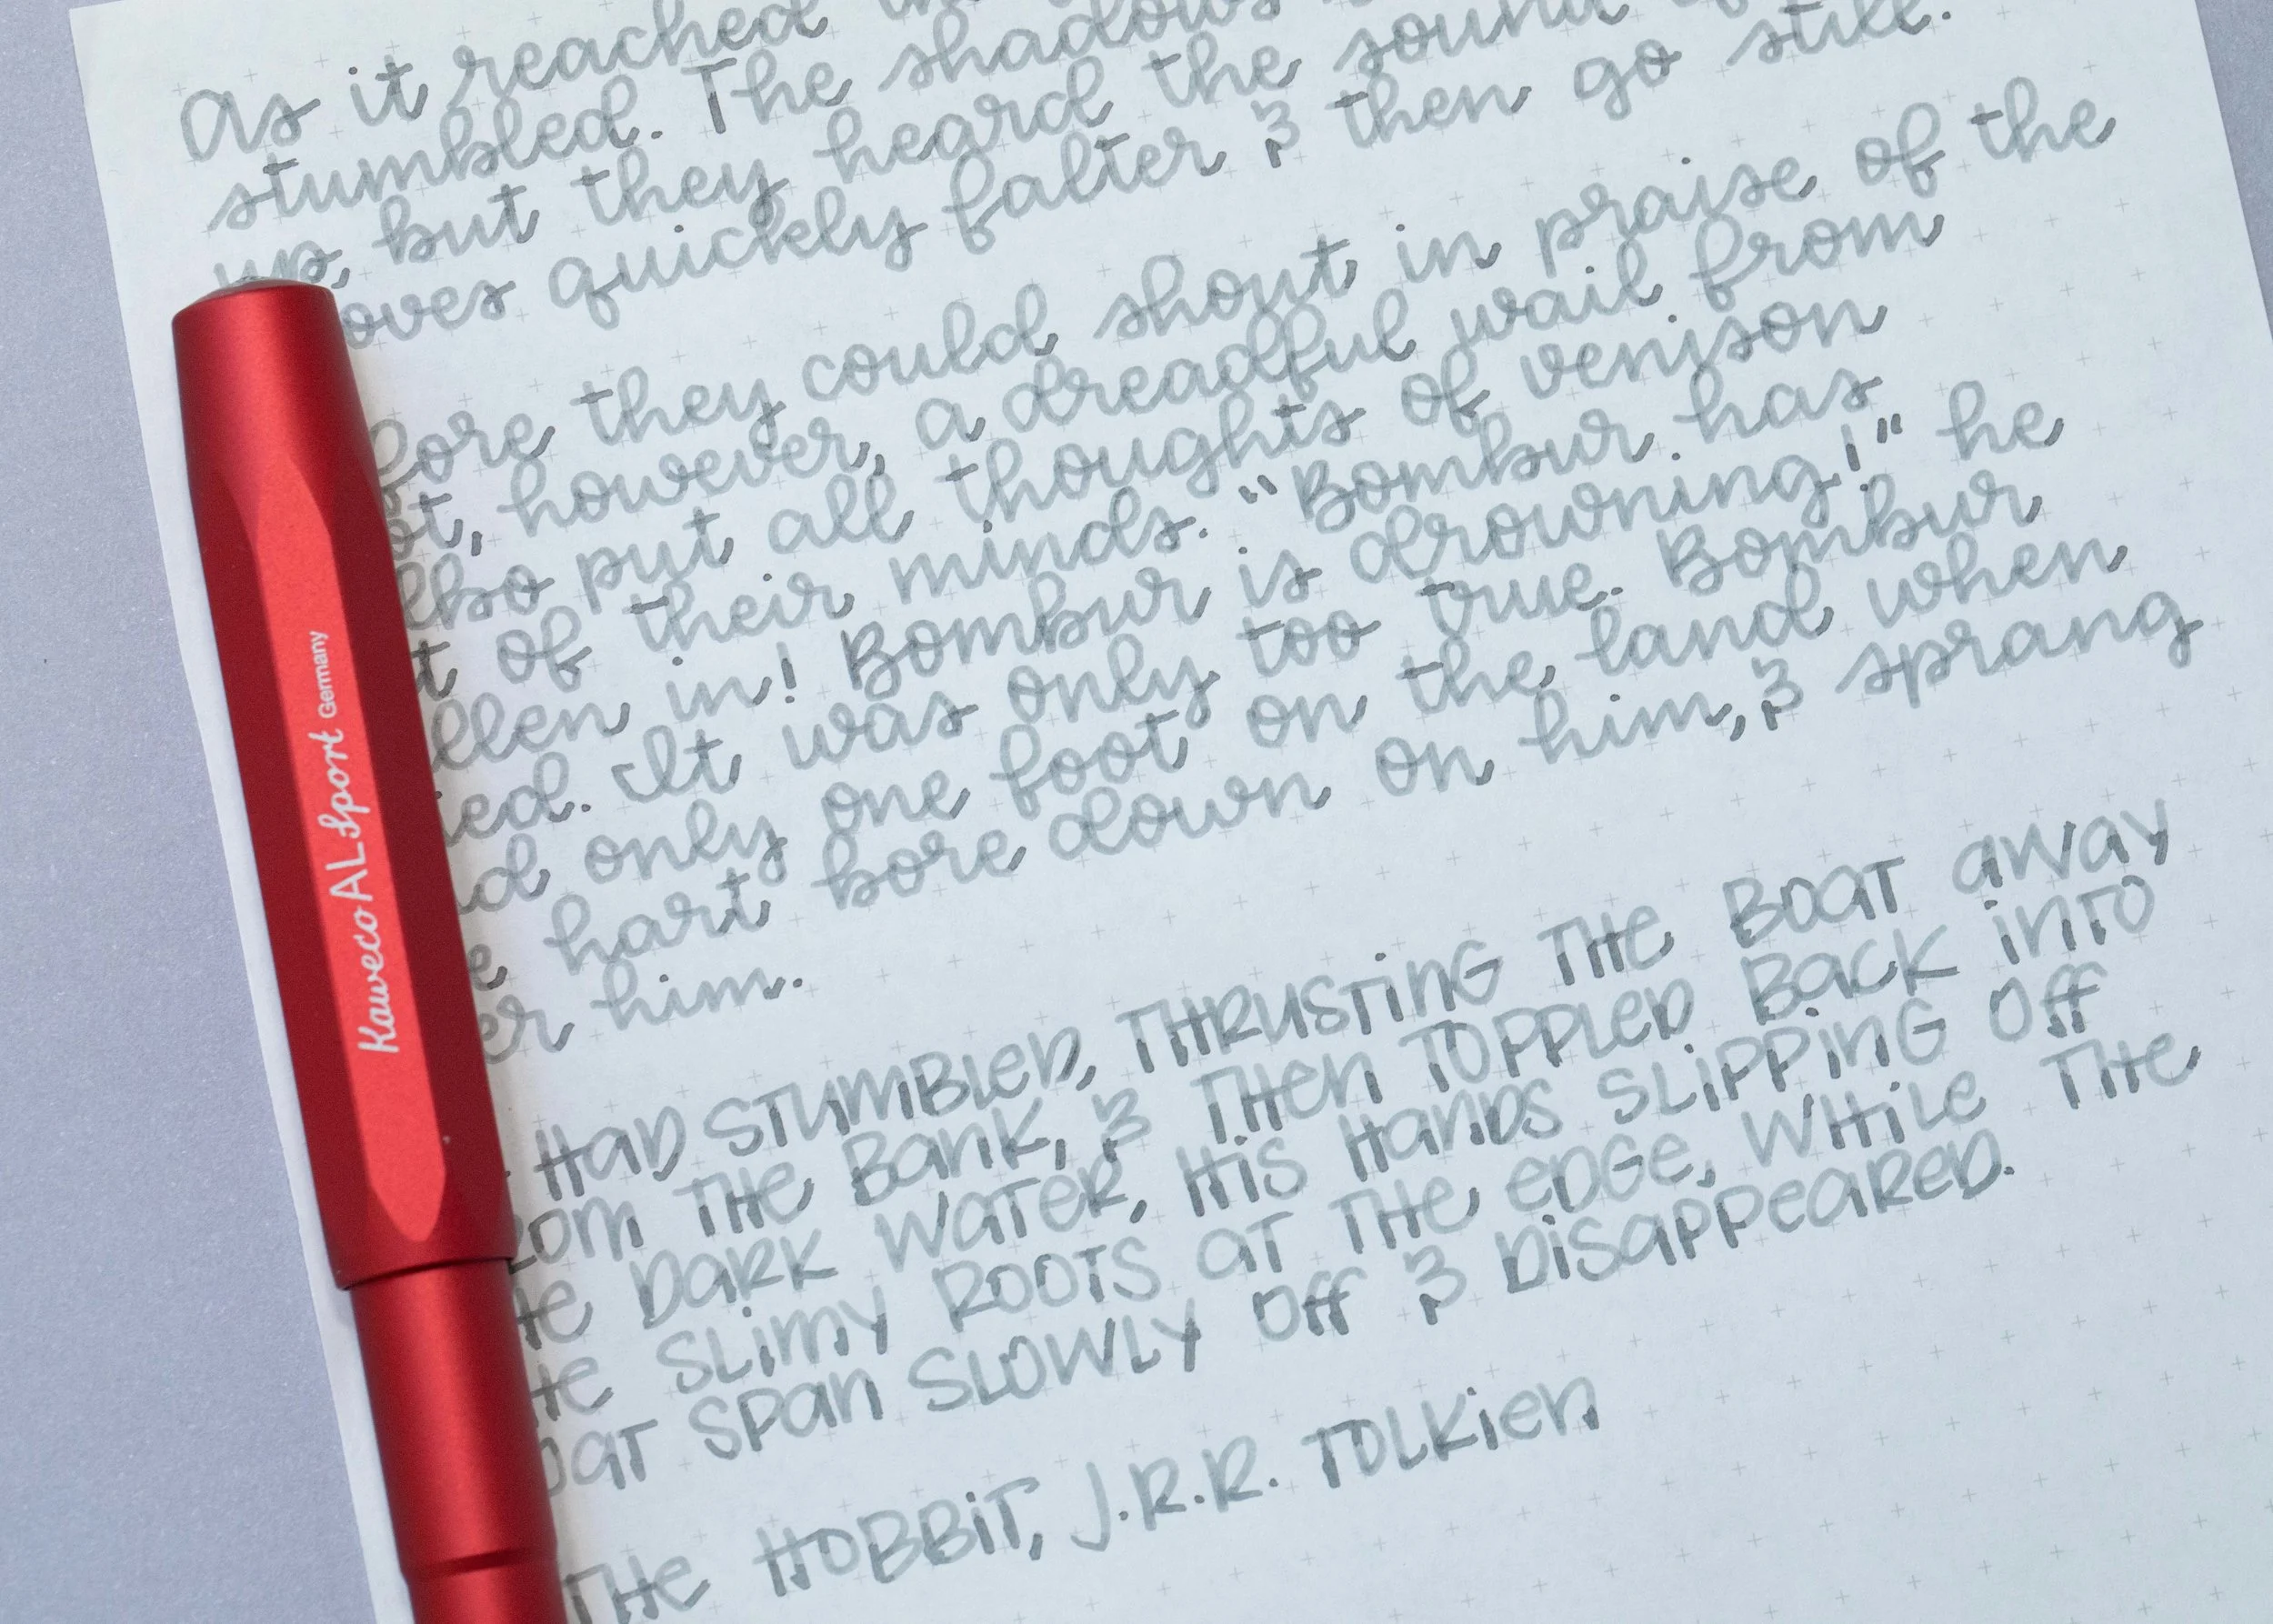 As it reached the
stumbled. The shadows
up, but they heard the sound
oves quickly falter & then go still.
fore they could shout in praise of the
ot, however, a dreadful wail from
lbo put all thoughts of venison
t of their minds. "Bombur has
llen in! Bombur is drowning!" he
ied. It was only too true. Bombur
d only one foot on the land when
e hart bore down on him, & sprang
er him.
HAD STUMBLED, THRUSTING THE BOAT AWAY
ROM THE BANK, & THEN TOPPLED BACK INTO
HE DARK WATER, HIS HANDS SLIPPING OFF
HE SLIMY ROOTS AT THE EDGE, WHILE THE
OAT SPAN SLOWLY OFF & DISAPPEARED.
THE HOBBIT, J.R.R. TOLKIEN
Kaweco AL Sport Germany